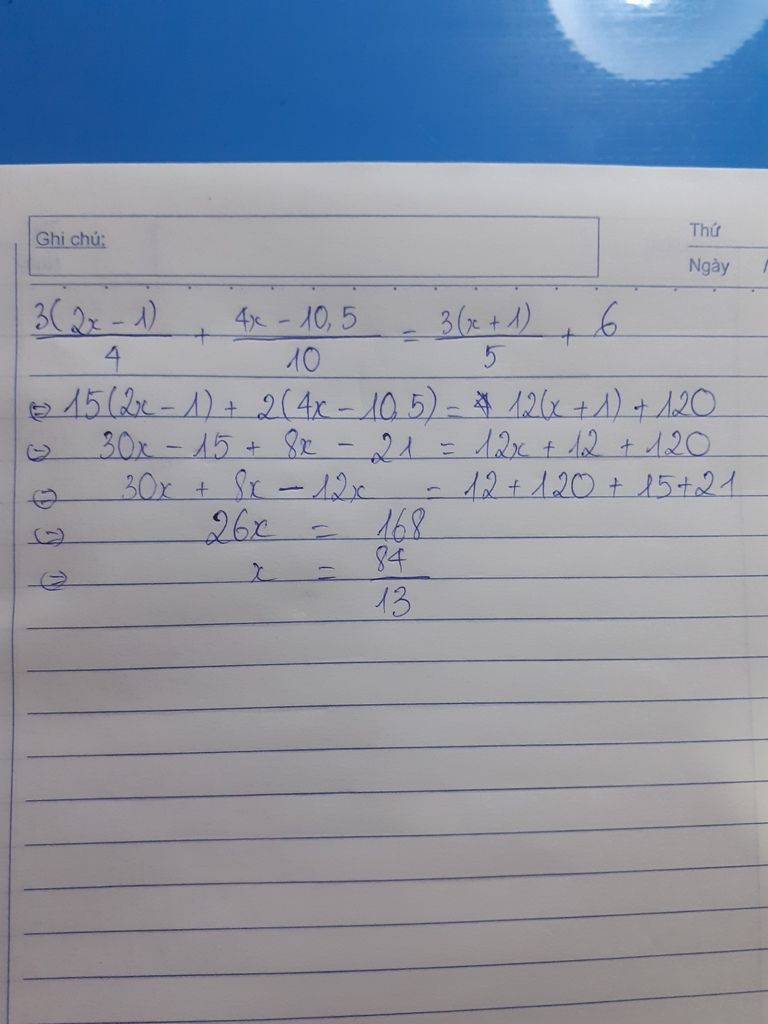 Ghi chú:
Thứ
Ngày /
3(2x - 1)/4 + 4x - 10,5/10 = 3(x + 1)/5 + 6
⇔ 15(2x - 1) + 2(4x - 10,5) = 12(x + 1) + 120
⇔ 30x - 15 + 8x - 21 = 12x + 12 + 120
⇔ 30x + 8x - 12x = 12 + 120 + 15 + 21
⇔ 26x = 168
⇔ x = 84/13